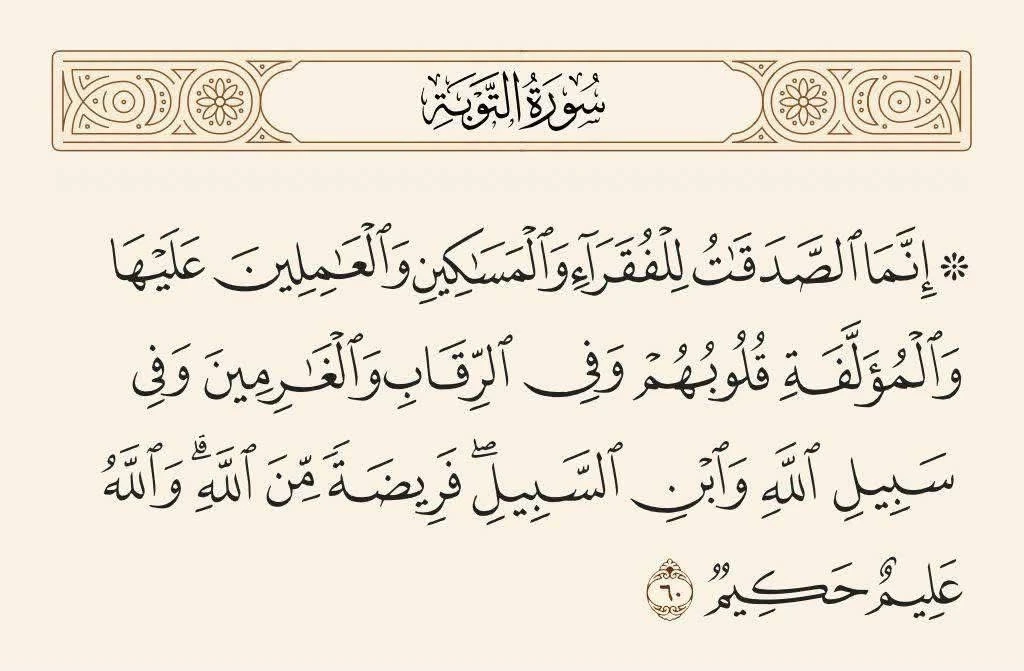 سُورَةُ التَّوْبَةِ
۞ إِنَّمَا ٱلصَّدَقَـٰتُ لِلْفُقَرَآءِ وَٱلْمَسَـٰكِينِ وَٱلْعَـٰمِلِينَ عَلَيْهَا
وَٱلْمُؤَلَّفَةِ قُلُوبُهُمْ وَفِى ٱلرِّقَابِ وَٱلْغَـٰرِمِينَ وَفِى
سَبِيلِ ٱللَّهِ وَٱبْنِ ٱلسَّبِيلِ ۖ فَرِيضَةً مِّنَ ٱللَّهِ ۗ وَٱللَّهُ
عَلِيمٌ حَكِيمٌ ٦٠